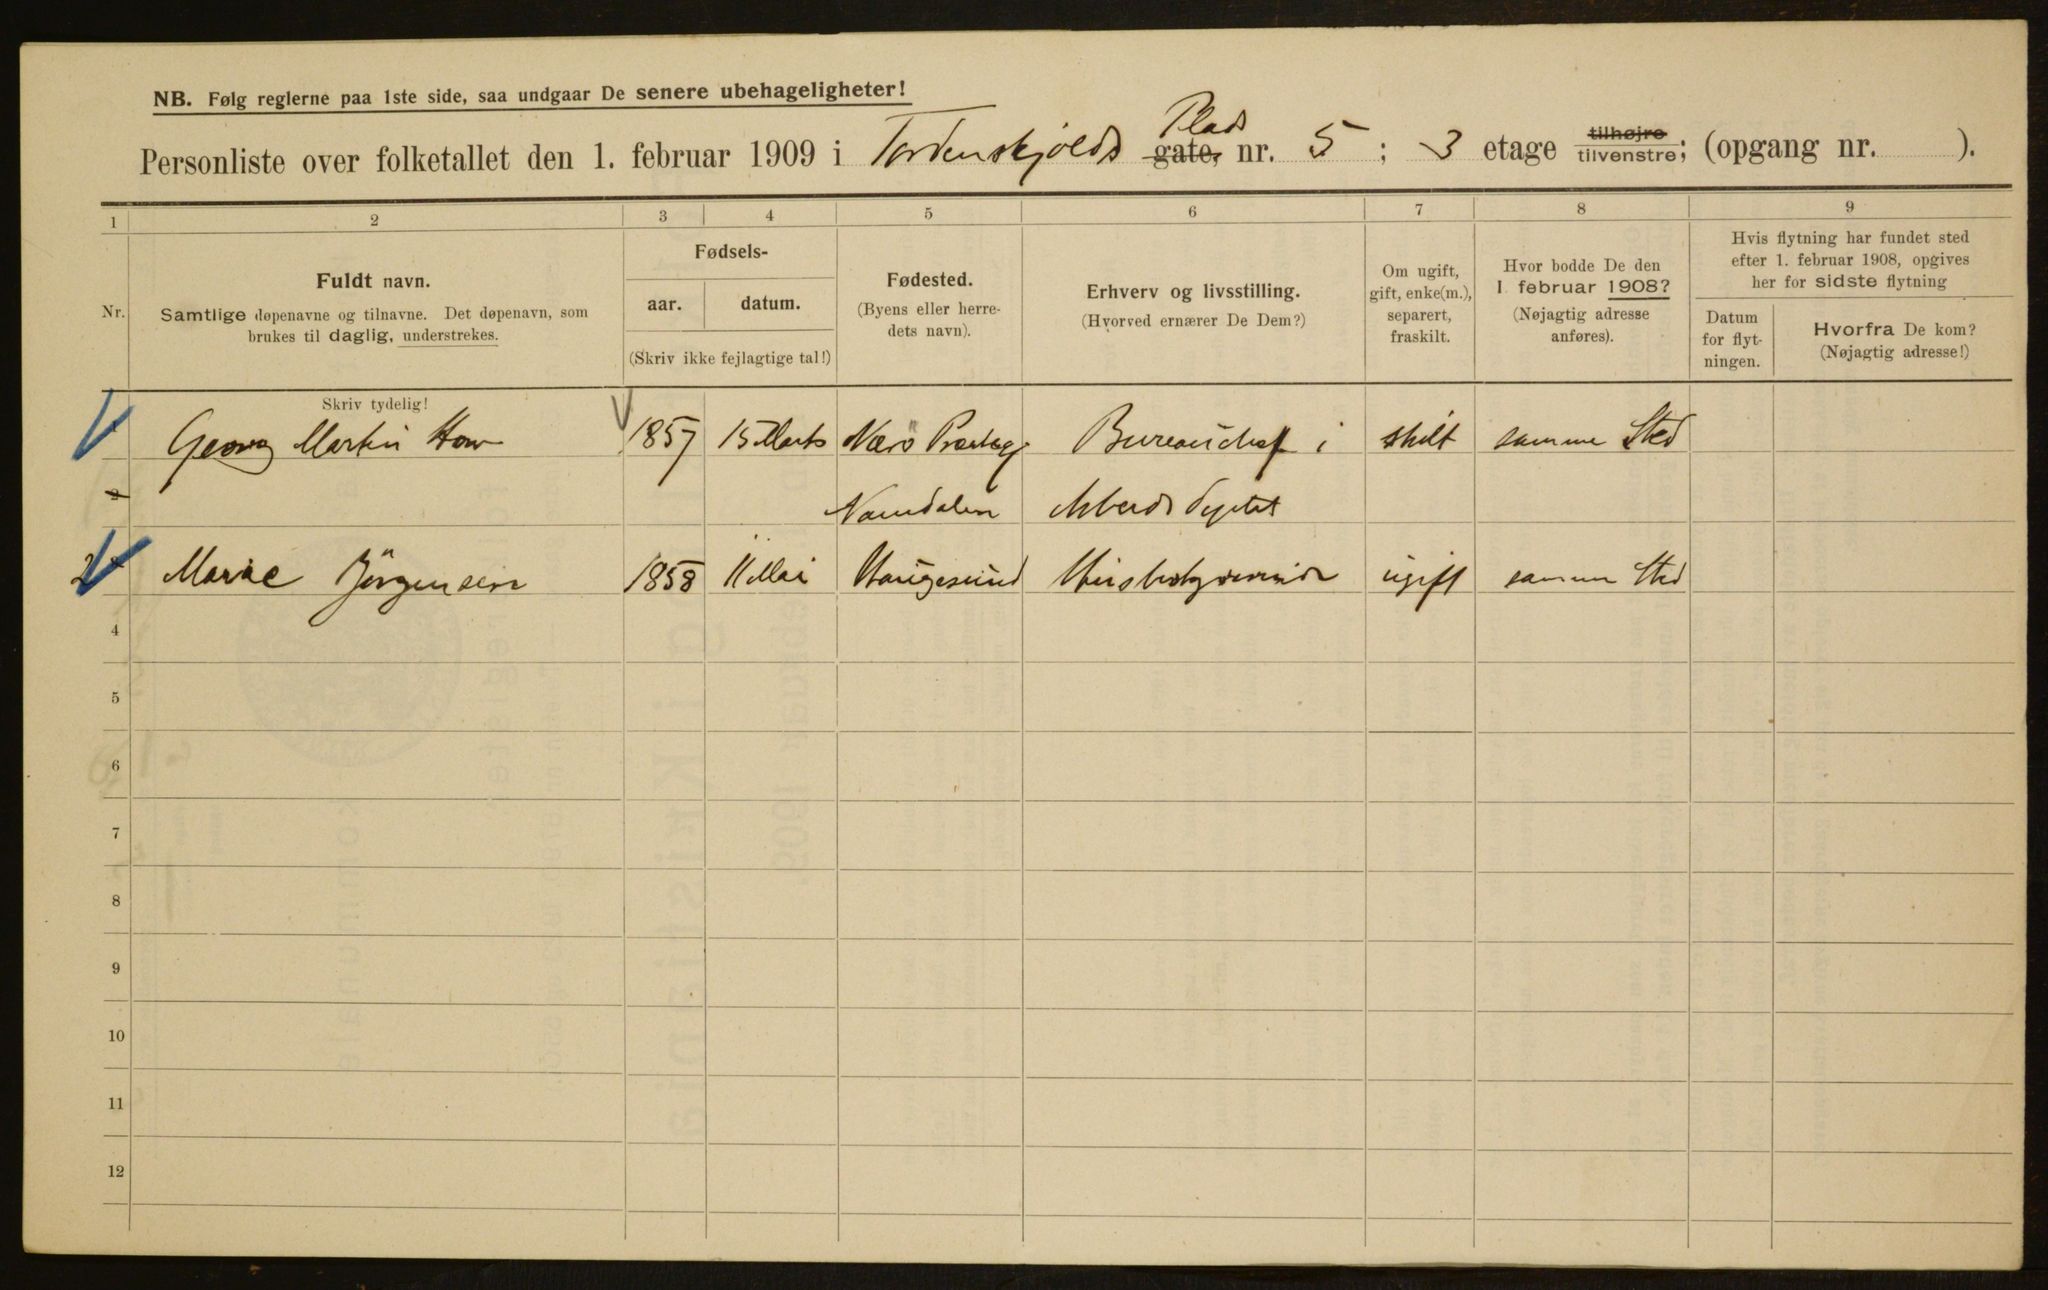 NB. Følg reglerne paa 1ste side, saa undgaar De senere ubehageligheter!
Plads
Personliste over folketallet den 1. februar 1909 i Tordenskjolds gate, nr. 5 ; 3 etage tilhøjre tilvenstre; (opgang nr. ).
1 2 3 4 5 6 7 8 9
Nr.
Fuldt navn.
Samtlige døpenavne og tilnavne. Det døpenavn, som
brukes til daglig, understrekes.
Fødsels-
aar. datum.
(Skriv ikke fejlagtige tal!)
Fødested.
(Byens eller herre-
dets navn).
Erhverv og livsstilling.
(Hvorved ernærer De Dem?)
Om ugift,
gift, enke(m.),
separert,
fraskilt.
Hvor bodde De den
1. februar 1908?
(Nøjagtig adresse
anføres).
Hvis flytning har fundet sted
efter 1. februar 1908, opgives
her for sidste flytning
Datum
for flyt-
ningen.
Hvorfra De kom?
(Nøjagtig adresse!)
Skriv tydelig!
Georg Martin 1857 15 Marts Nærö Bureauchef i skilt samme Sted
2 Namdalen
2 Marie Jörgensen 1858 11 Mai Haugesund ugift samme Sted
4
5
6
7
8
9
10
11
12